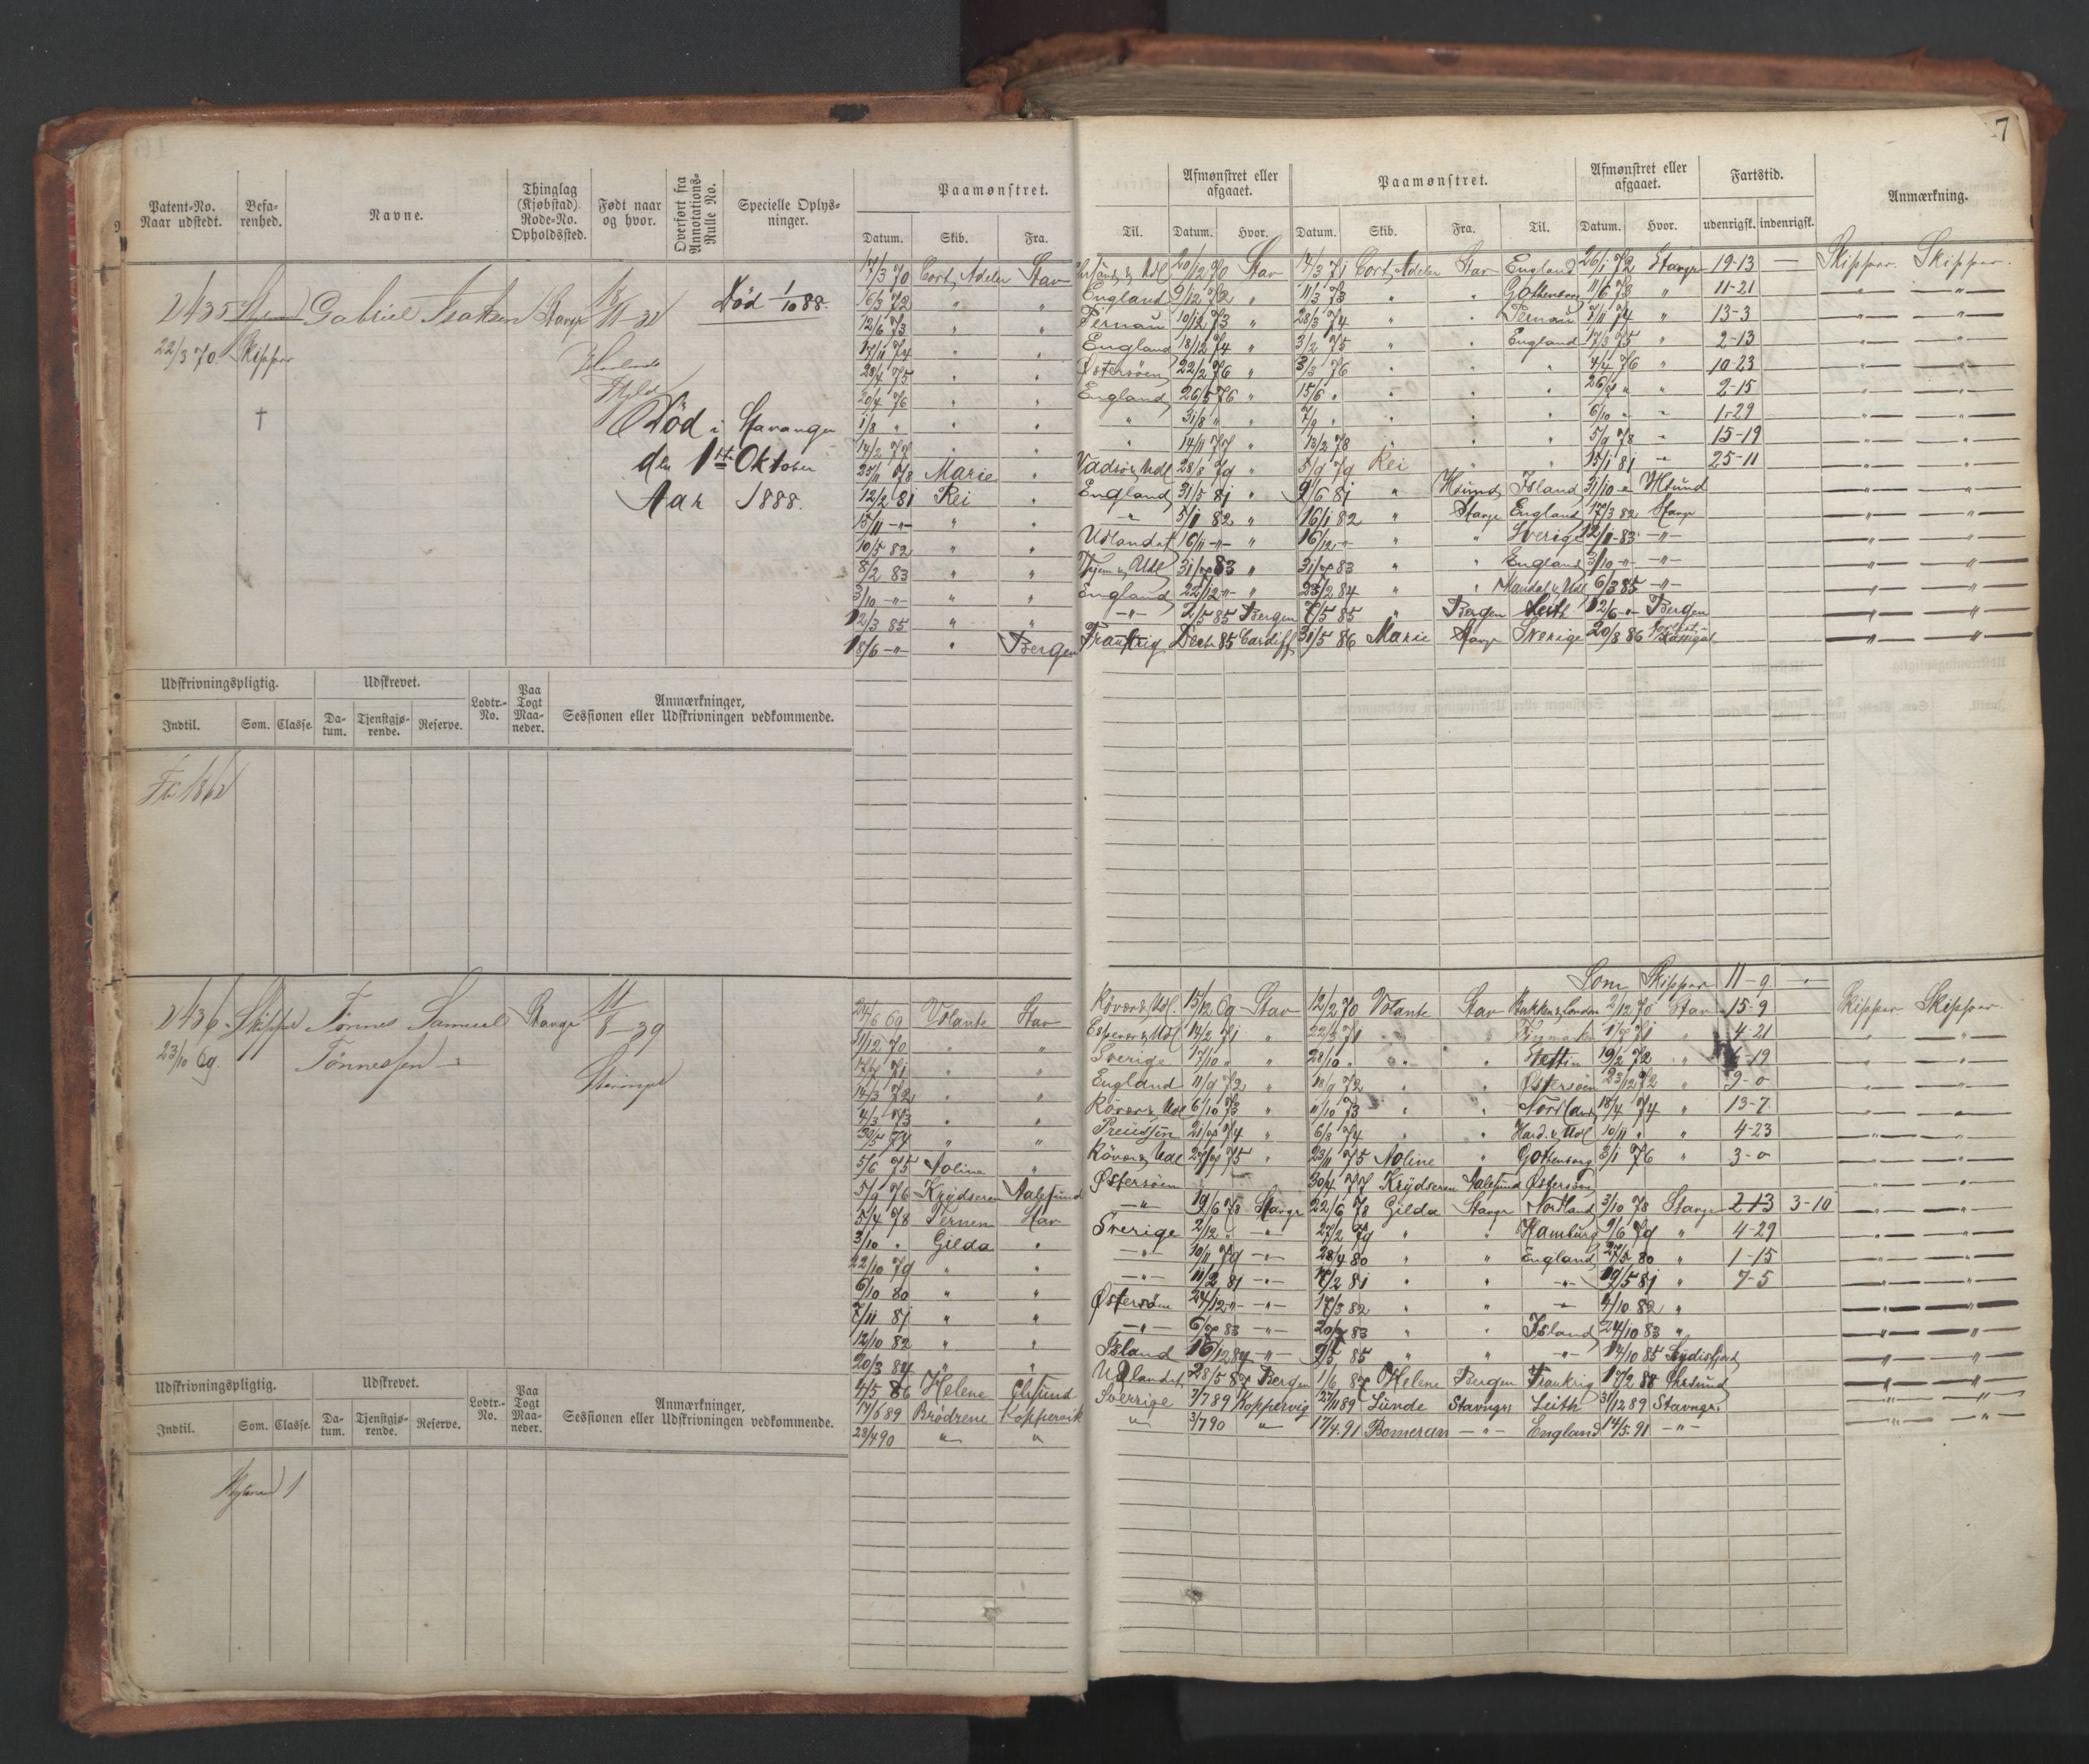 7
Patent-No. Naar udstedt.
Befarenhed.
Navne.
Thinglag (Kjøbstad). Rode-No. Opholdssted.
Født naar og hvor.
Overført fra Annotations-Rulle No.
Specielle Oplysninger.
Paamønstret.
Datum. Skib. Fra. Til.
Afmønstret eller afgaaet.
Datum. Hvor.
Paamønstret.
Datum. Skib. Fra. Til.
Afmønstret eller afgaaet.
Datum. Hvor.
Fartstid.
udenrigsk. indenrigsk.
Anmærkning.
2435 Gabriel Isaksen Stavgr
22/3 70 Skipper
Død 1/10 88.
†
Død i Stavanger
den 1st Oktober
Aar 1888.
17/3 70 Cort Adeler Stav 20/12 70 Stav 14/3 71 Cort Adeler Stav England 26/1 72 Stavgr 19-13 — Skipper. Skipper.
16/3 72 " " England 9/12 72 " 11/3 73 " " Gothenborg 11/6 73 " 11-21 —"— "
12/6 73 " " Pernau 10/12 73 " 28/3 74 " " Pernau 74 " 13-3 —"— "
17/11 74 " " England 18/12 74 " 3/2 75 " " England 17/3 75 " 2-13 —"— "
28/4 75 " " Østersøen 22/2 76 " 3/3 76 " " " 4/4 76 " 10-23 —"— "
20/4 76 " " England 26/5 76 " 15/6 " " " " 26/8 " " 2-15 —"— "
1/8 " " " " 31/8 " " 7/9 " " " " 6/10 " " 1-29 —"— "
14/2 77 " " " 14/11 77 " 13/2 78 " " " 5/9 78 " 15-19 —"— "
25/11 78 Marie " Vadsö & Udl 28/8 79 " 5/9 79 Rei " " 15/1 81 " 25-11 —"— "
12/2 81 Rei " England 31/5 81 " 9/6 81 " Hsund Island 31/10 " Hsund —"— "
15/11 -"- " " -"- 5/1 82 " 16/1 82 " Stavgr England 17/3 82 Stavgr —"— "
10/5 82 " " Udlandet 16/11 -"- " 16/12 -"- " " Sverige 12/1-83 -"- —"— "
8/2 83 " " 31/7 83 " 31/7 83 " " England 3/10 -"- -"- —"— "
3/10 -"- " " England 22/12 -"- " 23/2 84 " " Mandal & Udl 6/3 85 -"- —"— "
12/3 85 " " -"- 2/5 85 Bergen 7/5 85 " Bergen Leith 12/6 -"- Bergen —"— "
18/6 -"- " Bergen Frankrig Decbr 85 Cardiff 31/5 86 Marie Stavgr Sverige 20/8 86 —"— "
Udskrivningspligtig. Udskrevet. Lodtr.-No. Paa Togt Maaneder. Anmærkninger, Sessionen eller Udskrivningen vedkommende.
Indtil. Som. Classe. Datum. Tjenstgjørende. Reserve.
Som Skipper 11-9 —
2436 Skipper Tönnes Samuel Stavgr 11/8-39
23/10 69 Tönnessen
24/6 69 Volante Stav Rövær & Udl. 15/12 69 Stav 12/2 70 Volante Stav 2/12 70 Stav 15-9 Skipper Skipper.
11/12 70 " " 14/2 71 " 22/3 71 " " 71 " 4-21 —"— "
71 " " Sverige 17/10 " " 28/10 " " " Stettin 19/2 72 " -19 —"— "
14/3 72 " " England 11/9 72 " 18/9 72 " " Østersöen 23/12 72 " 9-0 —"— "
4/3 73 " " Rövær & Udl 6/10 73 " 11/10 73 " " Nordland 18/4 74 " 13-7 —"— "
30/5 74 " " Preussen 21/7 74 " 6/8 74 " " Hard. & Udl 10/11 " " 4-23 —"— "
5/6 75 Noline " Rövær & Udl 75 " 23/11 75 Noline " Gothenborg 3/1 76 " 3-0 —"— "
5/9 76 Krydseren Aalesund Østersöen 30/4 77 Krydseren Aalesund Østersöen —"— "
5/4 78 Ternen Stav -"- 19/6 78 Stavgr 22/6 78 Gilda Stavgr Nordland 3/10 78 Stavgr 2-13 3-10 —"— "
3/10 " Gilda " Sverige 2/12 " -"- 27/2 79 " " Hamburg 9/6 79 " 4-29 —"— "
22/10 79 " " -"- 10/11 79 -"- 28/4 80 " " England 27/5 80 " 1-15 —"— "
6/10 80 " " -"- 11/2 81 -"- 17/2 81 " " -"- 19/5 81 " 7-5 —"— "
7/11 81 " " Østersöen 24/12 -"- -"- 17/3 82 " " -"- 4/10 82 " —"— "
12/10 82 " " -"- 6/7 83 -"- 20/7 83 " " Island 24/10 83 " —"— "
20/3 84 " " Island 16/12 84 -"- 9/5 85 " " -"- 14/10 85 Seydisfjord —"— "
4/5 86 Helene Udlandet 28/5 87 Bergen 1/6 87 Helene Bergen Frankrig 17/2 88 —"— "
14/6 89 Brödrene Koppervik Sverrige 3/7 89 Koppervig 27/11 89 Lunde Stavngr. Leith 31/12 89 Stavngr. —"— "
28/4 90 " " " 3/7 90 " 17/4.91 Pomeran -"- England 14/5.91 -"- —"— "
Udskrivningspligtig. Udskrevet. Lodtr.-No. Paa Togt Maaneder. Anmærkninger, Sessionen eller Udskrivningen vedkommende.
Indtil. Som. Classe. Datum. Tjenstgjørende. Reserve.